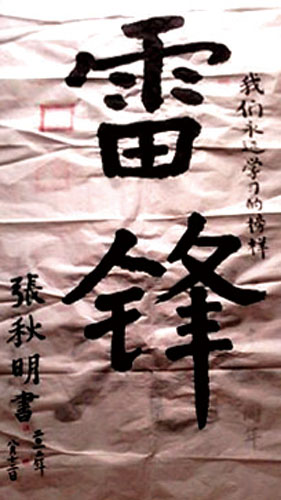 我们永远学习的榜样
雷锋
張秋明書